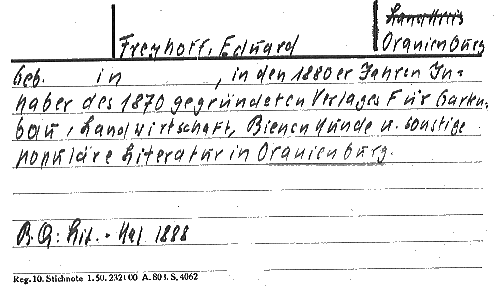 Freyhoff, Eduard
Oranienburg
Geb. in , in den 1880er Jahren In=
haber des 1870 gegründeten Verlages für Gartn-
bau, Landwirtschaft, Bienenkunde u. sonstige
populäre Literatur in Oranienburg.
B.Q.: Lit. - Kal 1888
Reg. 10. Stichnote 1. 50. 232100 A. 803. S. 4062